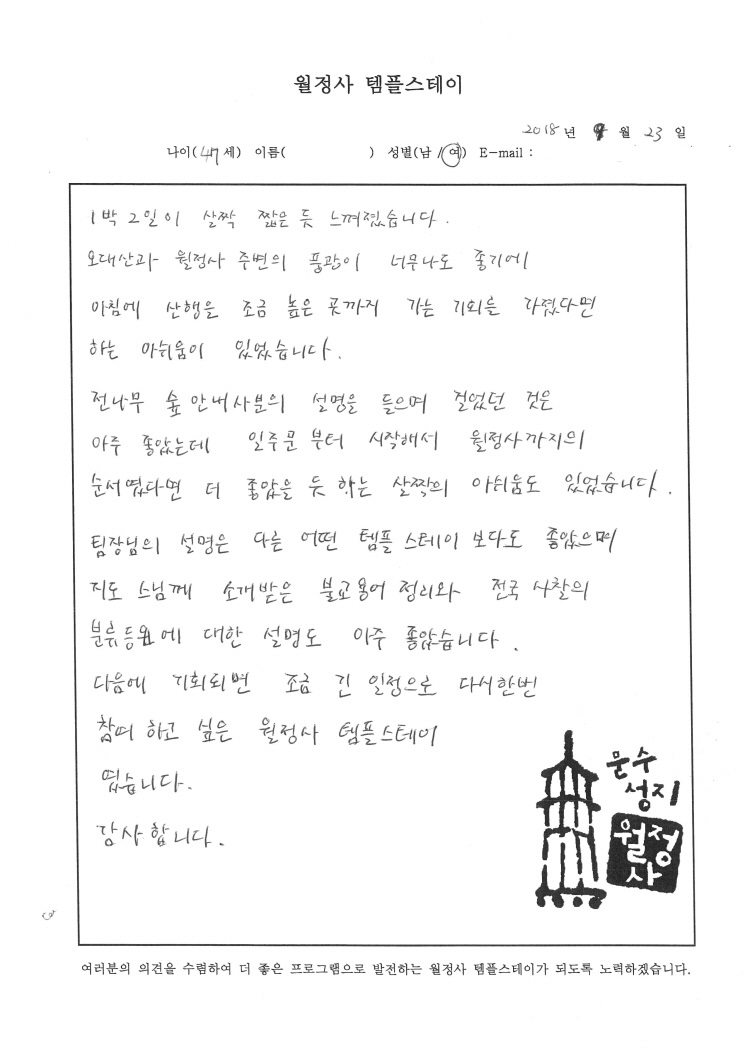 월정사 템플스테이
2018 년 9 월 23 일
나이( 47 세) 이름( ) 성별(남 / 여) E-mail :
1박 2일이 살짝 짧은 듯 느껴졌습니다.
오대산과 월정사 주변의 풍광이 너무나도 좋기에
아침에 산행을 조금 높은 곳까지 가는 기회를 가졌다면
하는 아쉬움이 있었습니다.
전나무 숲 안내사분의 설명을 들으며 걸었던 것은
아주 좋았는데 일주문 부터 시작해서 월정사까지의
순서였다면 더 좋았을 듯 하는 살짝의 아쉬움도 있었습니다.
팀장님의 설명은 다른 어떤 템플 스테이 보다도 좋았으며
지도 스님께 소개받은 불교용어 정리와 전국 사찰의
분류등에 대한 설명도 아주 좋았습니다.
다음에 기회되면 조금 긴 일정으로 다시한번
참여 하고 싶은 월정사 템플스테이
였습니다.
감사합니다.
문수
성지
월정
사
여러분의 의견을 수렴하여 더 좋은 프로그램으로 발전하는 월정사 템플스테이가 되도록 노력하겠습니다.